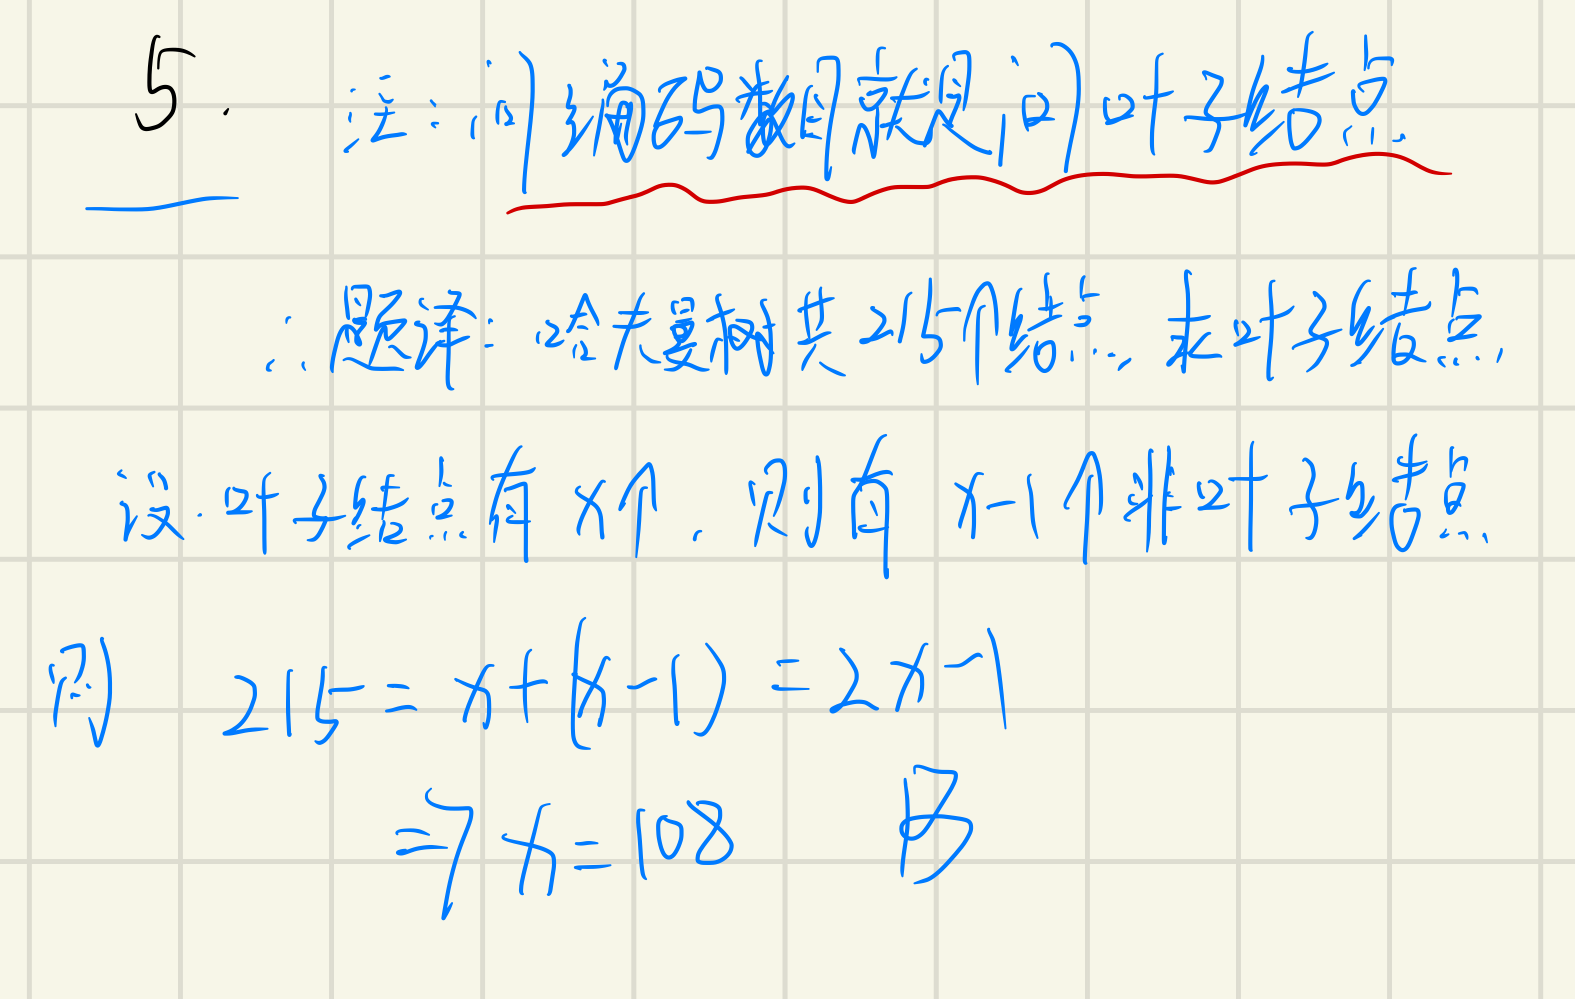 5. 注:问编码数目就是问叶子结点
∴题译:哈夫曼树共215个结点,求叶子结点,
设.叶子结点有x个.则有x-1个非叶子结点
则 215=x+(x-1)=2x-1
=> x=108 B